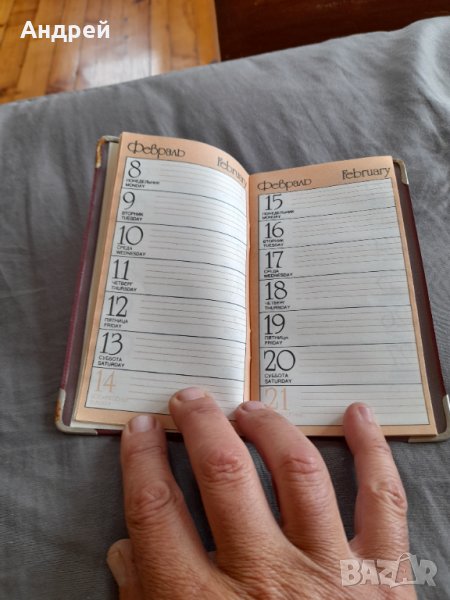 Андрей
Февраль February
8
ПОНЕДЕЛЬНИК
MONDAY
9
ВТОРНИК
TUESDAY
10
СРЕДА
WEDNESDAY
11
ЧЕТВЕРГ
THURSDAY
12
ПЯТНИЦА
FRIDAY
13
СУББОТА
SATURDAY
14
Февраль February
15
ПОНЕДЕЛЬНИК
MONDAY
16
ВТОРНИК
TUESDAY
17
СРЕДА
WEDNESDAY
18
ЧЕТВЕРГ
THURSDAY
19
ПЯТНИЦА
FRIDAY
20
СУББОТА
SATURDAY
21
BAZAR